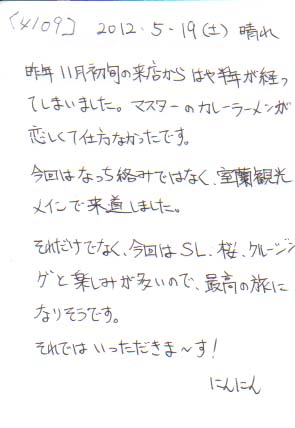 ［4109］ 2012.5.19(土) 晴れ
昨年11月初旬の来店からはや半年が経っ
てしまいました。マスターのカレーラーメンが
恋しくて仕方なかったです。
今回はなっち絡みではなく、室蘭観光
メインで来道しました。
それだけでなく、今回はSL、桜、クルージン
グと楽しみが多いので、最高の旅に
なりそうです。
それではいっただきま～す!
にんにん